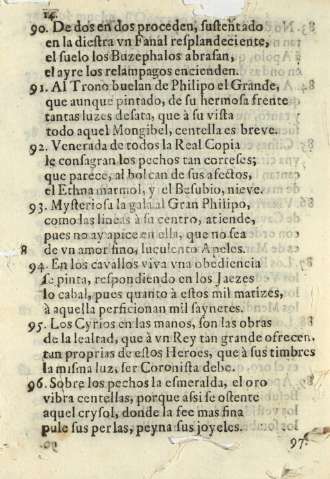 14
90. De dos en dos proceden, sustentado
en la diestra vn Fanal resplandeciente,
el suelo los Buzephalos abrasan,
el ayre los relampagos encienden.
91. Al Trono buelan de Philipo el Grande,
que aunque pintado, de su hermosa frente
tantas luzes desata, que à su vista
todo aquel Mongibel, centella es breve.
92. Venerada de todos la Real Copia
le consagran los pechos tan corteses;
que parece, al bolcan de sus afectos,
el Ethna marmol, y el Besubio, nieve.
93. Mysteriosa la gala al Gran Philipo,
como las lineas à su centro, atiende,
pues no ay apice en ella, que no sea
de vn amor fino, luculento Apeles.
8
94. En los cavallos viva vna obediencia
se pinta, respondiendo en los Jaezes
lo cabal, pues quanto à estos mil matizes,
à aquella perficionan mil sayneres.
95. Los Cyrios en las manos, son las obras
de la lealtad, que à vn Rey tan grande ofrecen.
tan proprias de estos Heroes, que à sus timbres
la misma luz, ser Coronista debe.
96. Sobre los pechos la esmeralda, el oro
vibra centellas, porque assi se ostente
aquel crysol, donde la fee mas fina
pule sus perlas, peyna sus joyeles.
97.